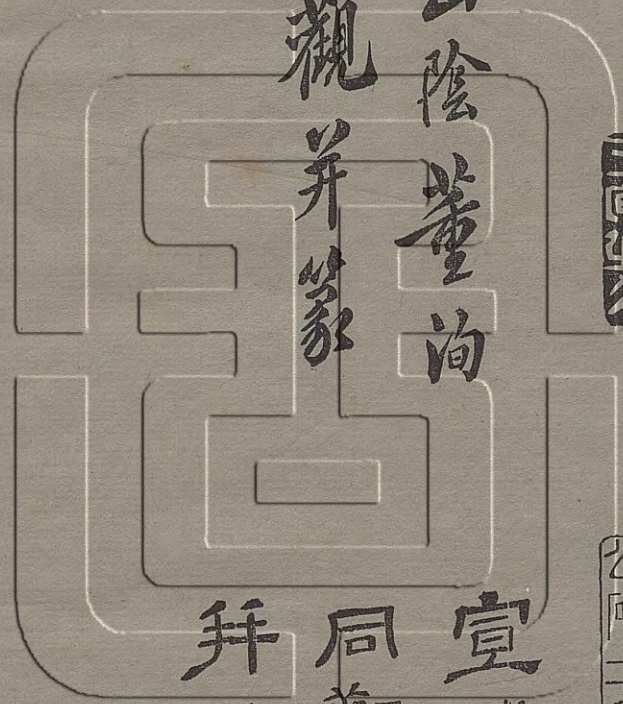 山陰董洵
觀并篆
宣
同
拜